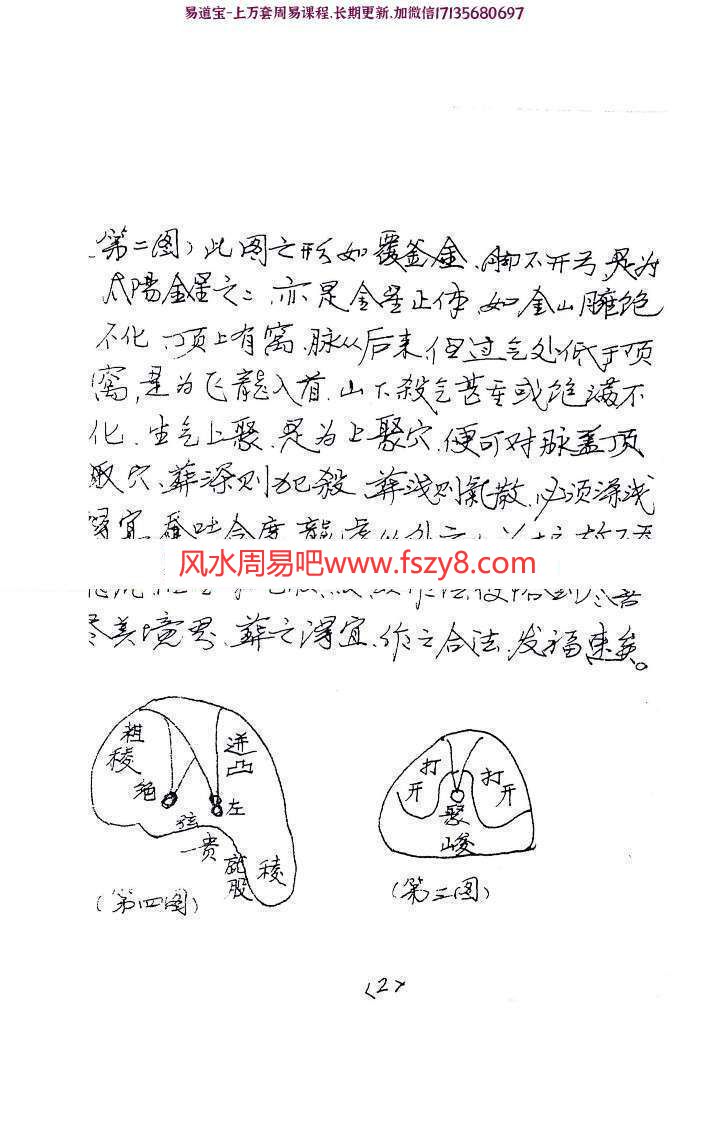 易道宝-上万套周易课程.长期更新.加微信17135680697
第二图)此图之形如覆釜金、脚不开弓,是为
太阳金星之二、亦是金星正体、如金山臃饱
不化、顶上有窝、脉从后来,但过气处低于顶
窝,是为飞龍入首、山下殺气甚重或饱满不
化、生气上聚、是为上聚穴、便可对脉盖顶
取穴、葬深则犯殺、葬浅则氣散、必须深浅
得宜
风水周易吧www.fszy8.com
尽美境界、葬之得宜、作之合法、发福速矣。
粗
稜
饱
迸
凸
左
弦
贵
稜
(第四图)
打
开
打
开
聚
峻
(第三图)
<2>